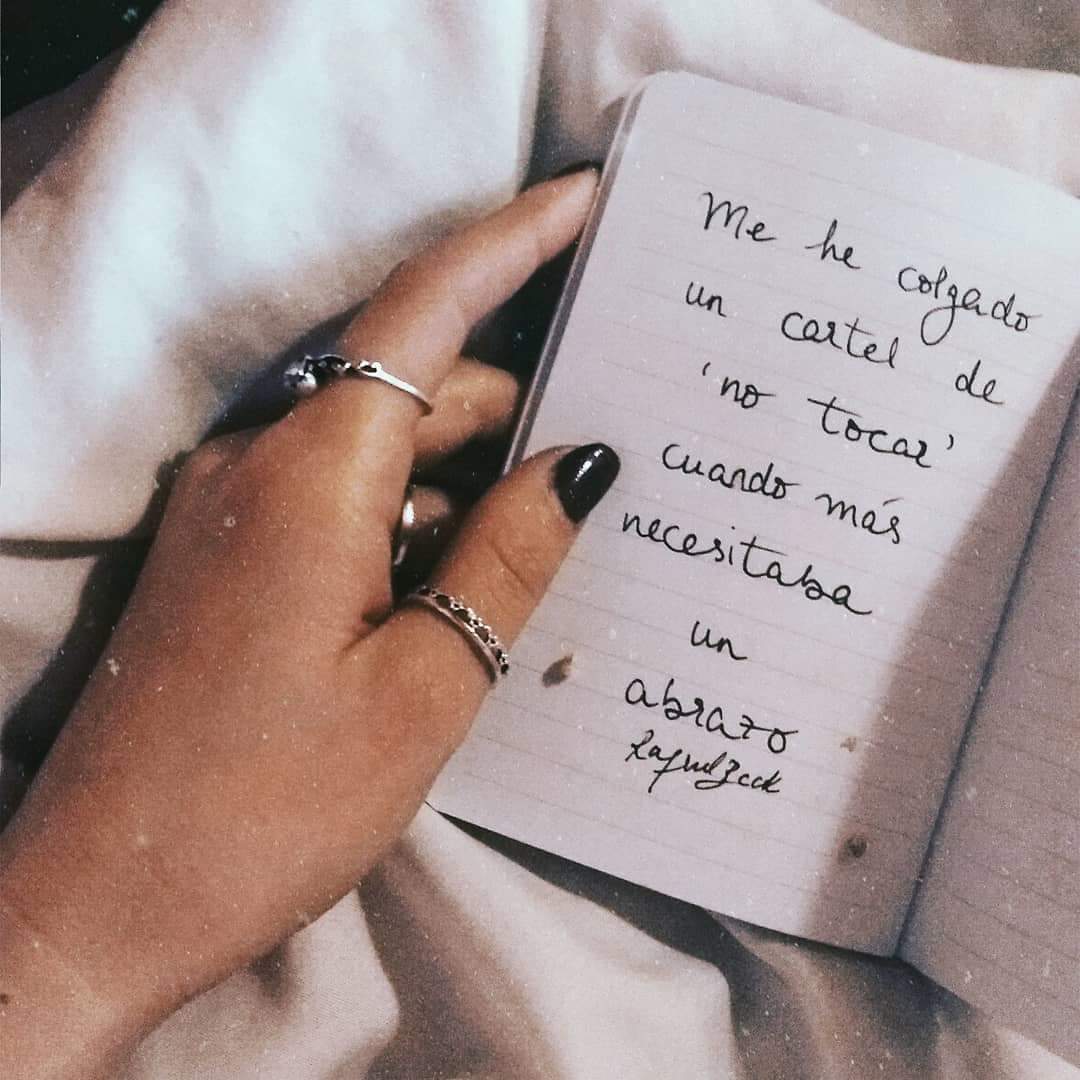 Me he colgado
un cartel de
'no tocar'
cuando más
necesitaba
un
abrazo